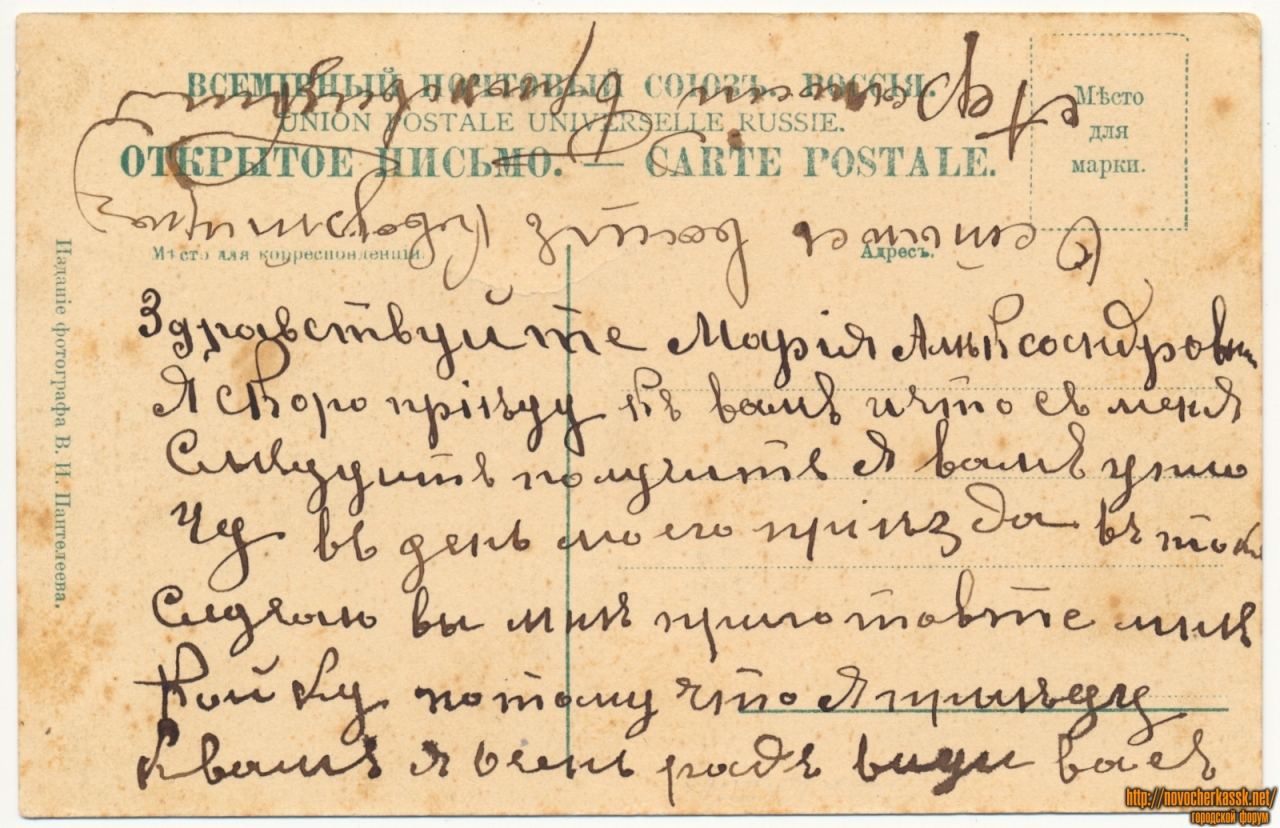 ВСЕМІРНЫЙ ПОЧТОВЫЙ СОЮЗЪ. РОССІЯ.
UNION POSTALE UNIVERSELLE RUSSIE.
ОТКРЫТОЕ ПИСЬМО. — CARTE POSTALE.
Мѣсто
для
марки.
Мѣсто для корреспонденціи.
Адресъ.
Изданіе фотографа В. И. Пантелеева.
Здравствуйте Марія Алѣксандровна
Я скоро пріѣду къ вамъ и что съ меня
Слѣдуитъ получитъ я вамъ упло
чу въ день моего пріѣзда въ тоже
случаю вы мнѣ приготовте мнѣ
Койку потому что я приѣду
к вамъ я очень радъ васъ
http://novocherkassk.net/
городской форум